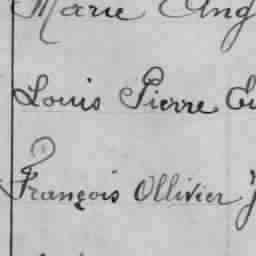 Marie Ang
Louis Pierre Eu
François Ollivier J